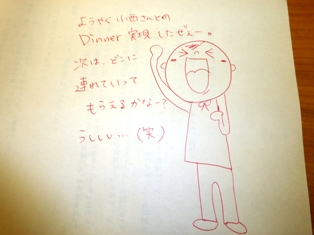 ようやく小西さんとの
Dinner 実現したぜぇー。
次は、どこに
連れていって
もらえるかなー?
うししし…(笑)